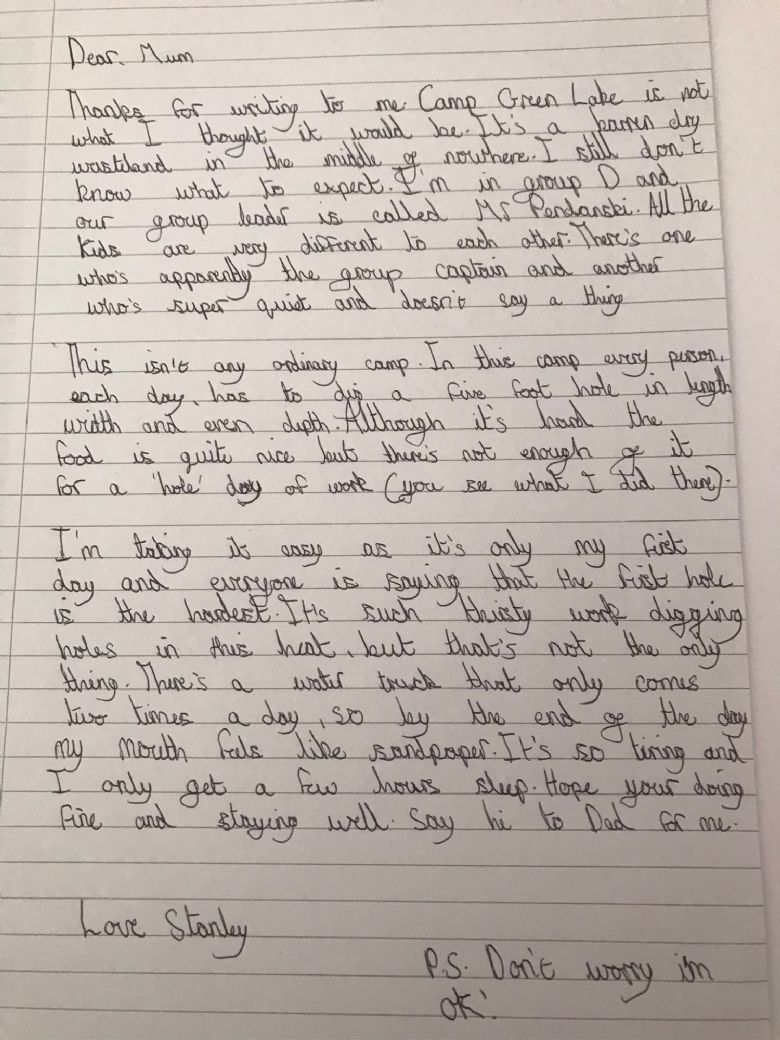 Dear. Mum
Thanks for writing to me Camp Green Lake is not
what I thought it would be. It's a barren dry
wasteland in the middle of nowhere. I still don't
know what to expect. I'm in group D and
our group leader is called Mr Pendanski. All the
kids are very different to each other. There's one
who's apparently the group captain and another
who's super quiet and doesn't say a thing
This isn't any ordinary camp. In this camp every person,
each day, has to dig a five foot hole in length
width and even depth. Although it's hard the
food is quite nice but there's not enough of it
for a 'hole' day of work (you see what I did there).
I'm taking it easy as it's only my first
day and everyone is saying that the first hole
is the hardest. It's such thirsty work digging
holes in this heat, but that's not the only
thing. There's a water truck that only comes
two times a day, so by the end of the day
my mouth feels like sandpaper. It's so tiring and
I only get a few hours sleep. Hope your doing
fine and staying well. Say hi to Dad for me.
Love Stanley
P.S. Don't worry i'm
ok!